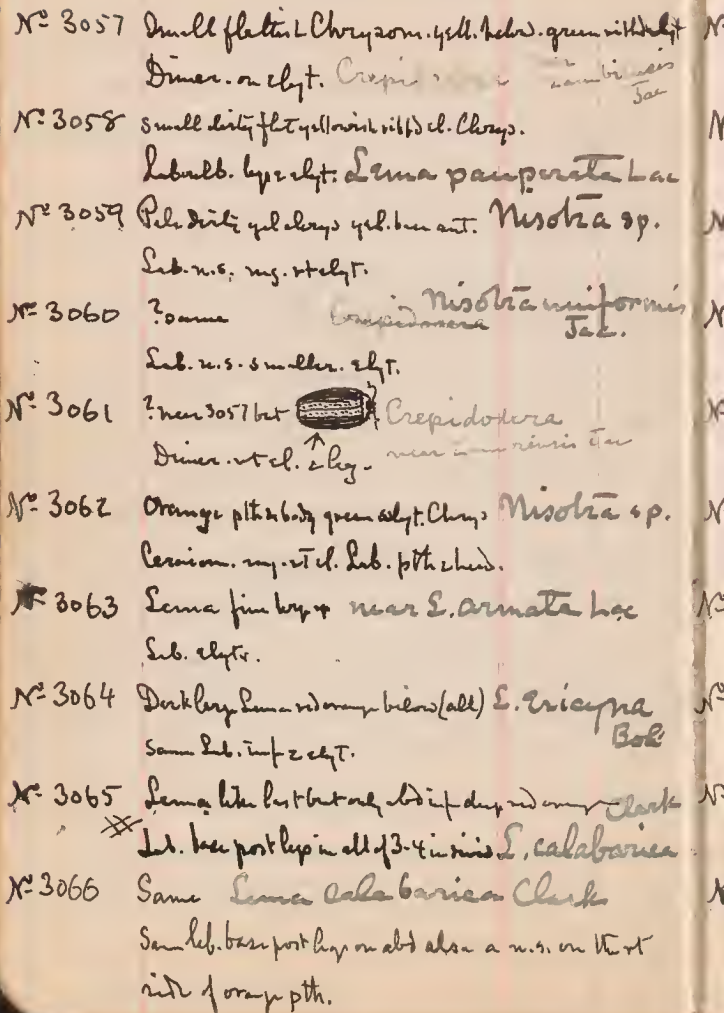 No 3057 Small flattish Chrysom. yell. below. green ribbed elyt
Dimer. on elyt. Crepi Jac
No 3058 small dirty flat yellowish ribbed el. Chrys.
Laboulb. legs & elyt. Lema pauperata Lac
No 3059 Pale dirty yel chrys yel. brn ant. Nisotra sp.
Lab. n.s. mg. rt elyt.
No 3060 ? same Crepidodera Nisotra uniformis Jac.
Lab. n.s. smaller. elyt.
No 3061 ? near 3057 but Crepidodera
Dimer. rt el. & leg. near Jac
No 3062 Orange pth & body green elyt. Chrys Nisotra sp.
Ceraiom. mg. rt el. Lab. pth & head.
No 3063 Lema fine large near L. armata Lac
Lab. elytr.
No 3064 Dark large Lema red orange below (all) L. Boh
Same Lab. inf & elyt.
No 3065 Lema like last but only abd inf deep red orange Clark
Lab. base post legs in all of 3-4 L. calabarica
No 3066 Same Lema calabarica Clark
Same lab. base post legs on abd also a n.s. on the rt
side of orange pth.